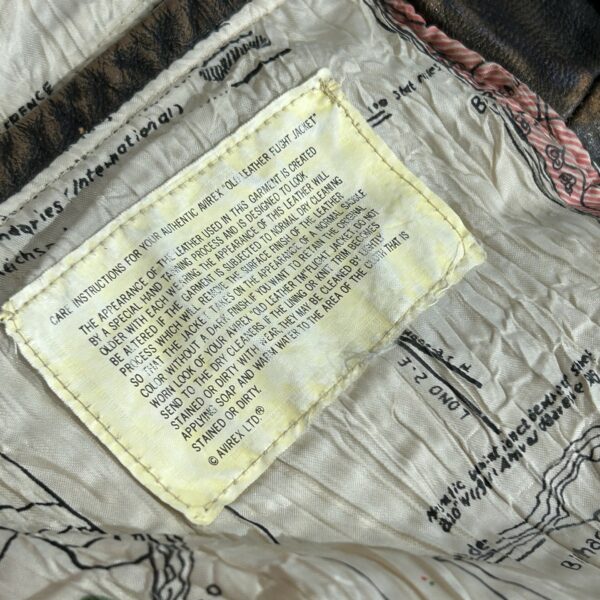 CARE INSTRUCTIONS FOR YOUR AUTHENTIC AVIREX "OLD LEATHER FLIGHT JACKET"
THE APPEARANCE OF THE LEATHER USED IN THIS GARMENT IS CREATED
BY A SPECIAL HAND TANNING PROCESS AND IS DESIGNED TO LOOK
OLDER WITH EACH WEARING THE APPEARANCE OF THIS LEATHER WILL
BE ALTERED IF THE GARMENT IS SUBJECTED TO NORMAL DRY CLEANING
PROCESS WHICH WILL REMOVE THE SURFACE FINISH OF THE LEATHER
SO THAT THE JACKET TAKES ON THE APPEARANCE OF A NORMAL SADDLE
COLOR WITHOUT A DARK FINISH. IF YOU WANT TO RETAIN THE ORIGINAL
WORN LOOK OF YOUR AVIREX "OLD LEATHER (TM) FLIGHT JACKET, DO NOT
SEND TO THE DRY CLEANERS. IF THE LINING OR KNIT TRIM BECOMES
STAINED OR DIRTY WITH WEAR, THEY MAY BE CLEANED BY LIGHTLY
APPLYING SOAP AND WARM WATER TO THE AREA OF THE CLOTH THAT IS
STAINED OR DIRTY.
© AVIREX LTD.®
(International)
LONG